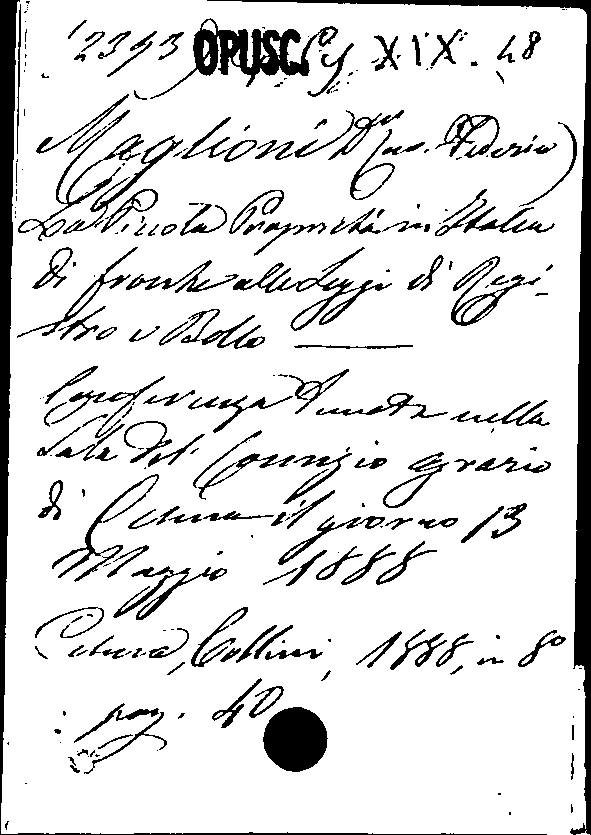 12393 OPUSC. Cf XIX. 48
Maglioni Dr (Cav. Federico)
La Piccola Proprietà in Italia
di fronte alle Leggi di Regi-
stro e Bollo
Conferenza tenuta nella
Sala del Comizio agrario
di Cesena il giorno 13
Maggio 1888
Cesena, Collini, 1888, in 8°
pag. 40